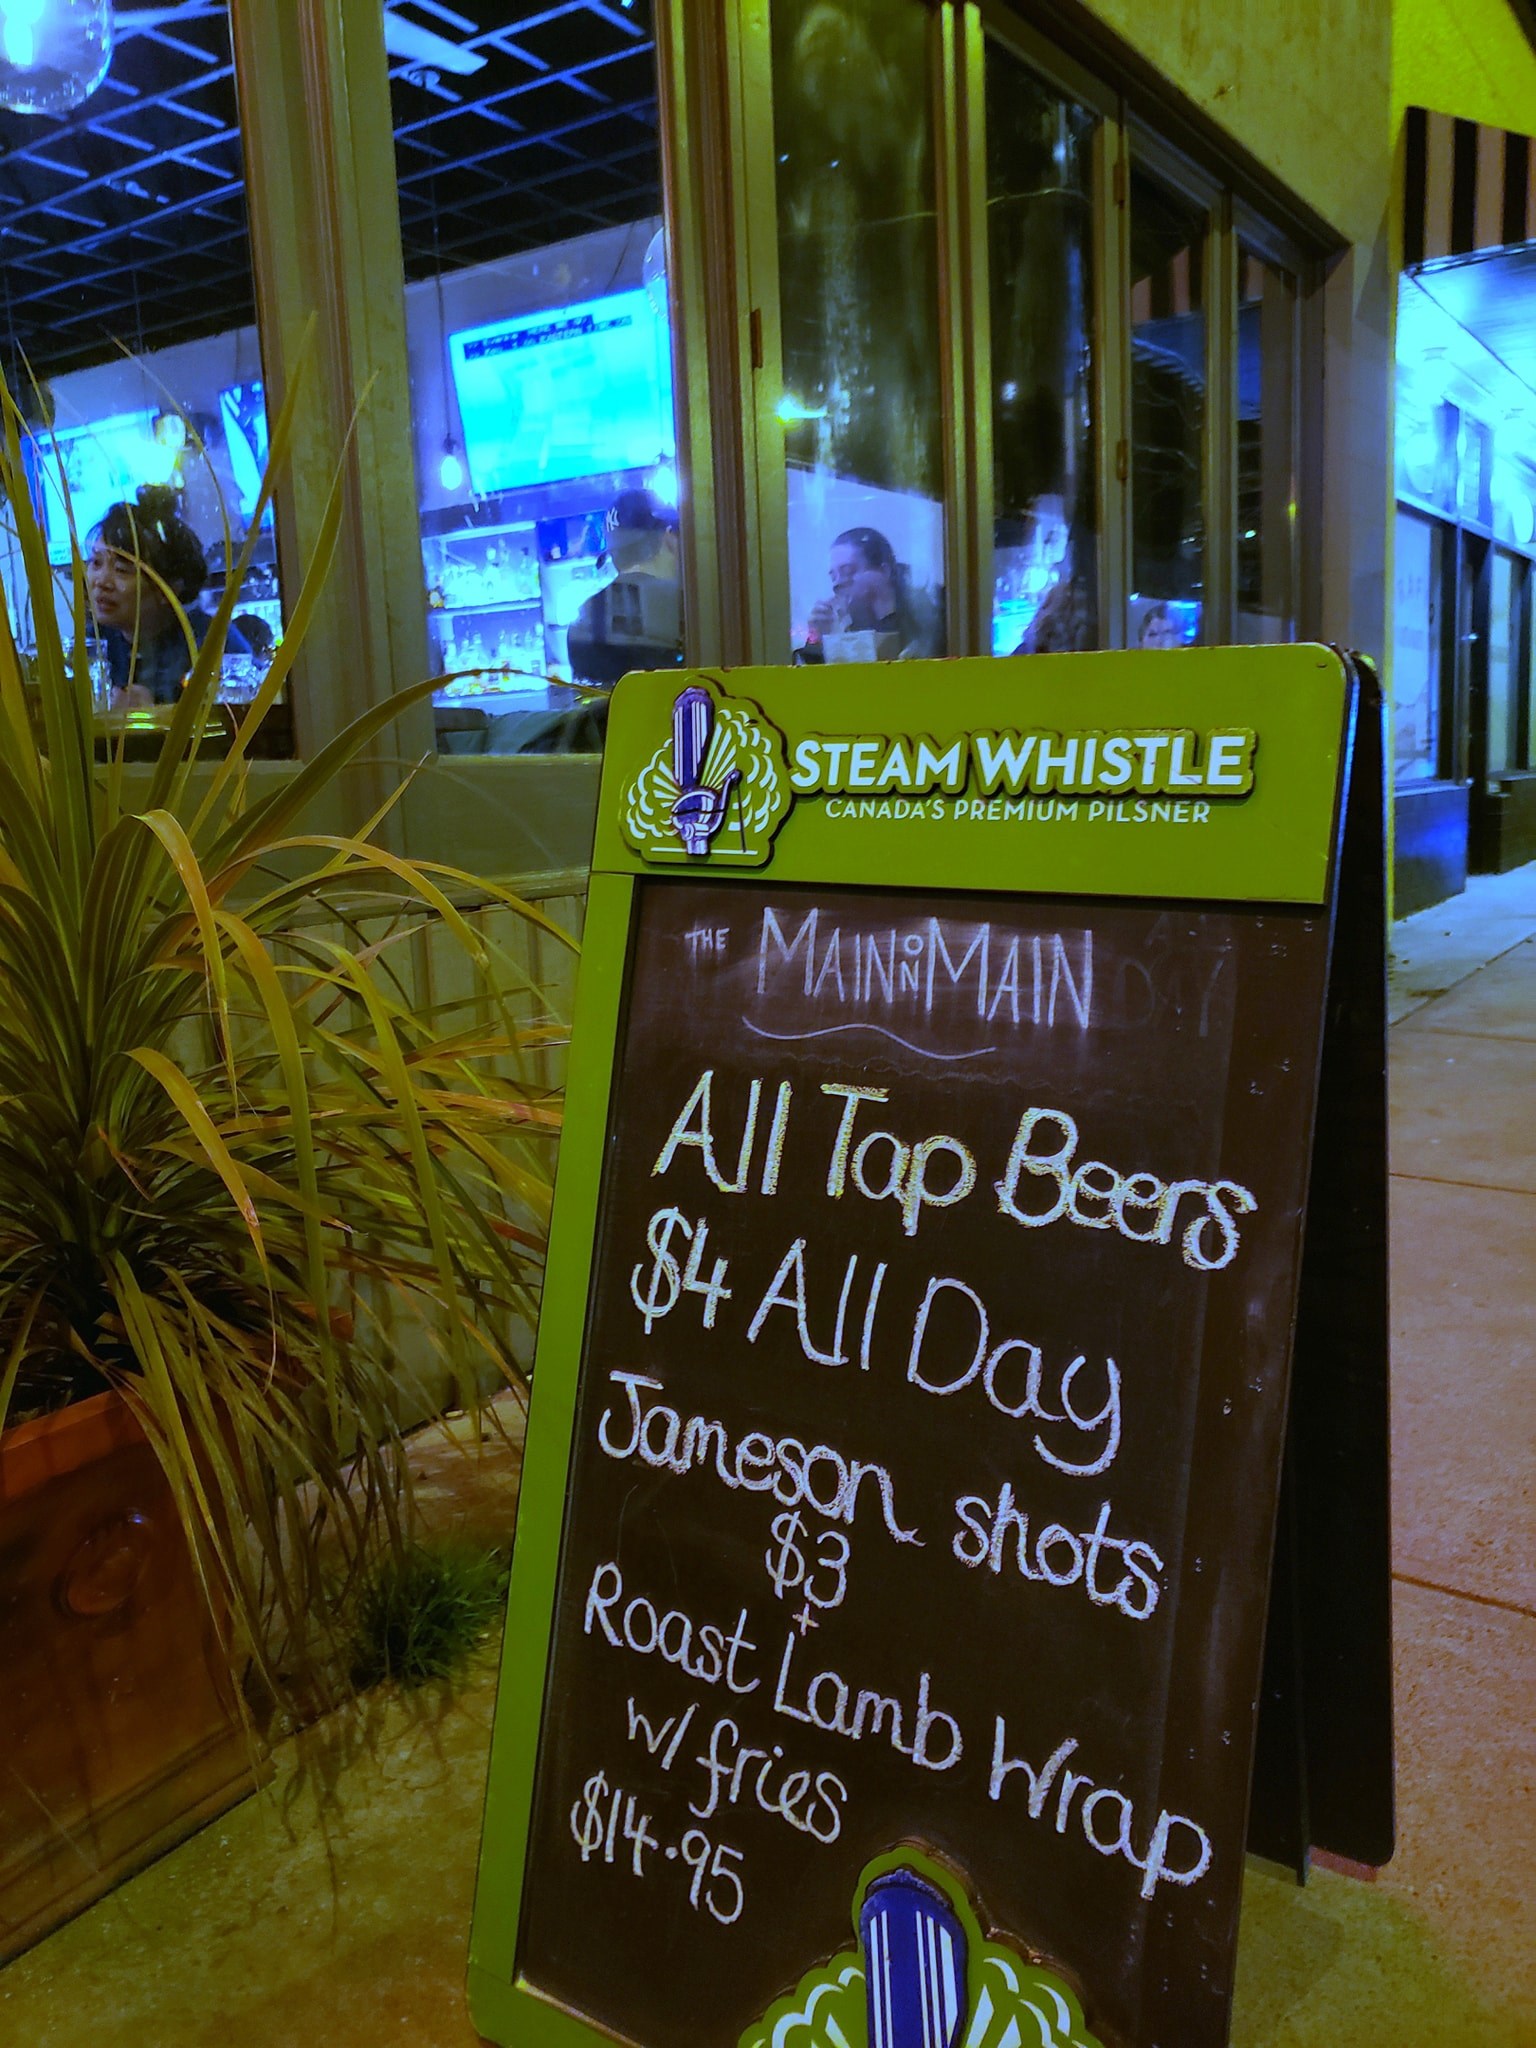 STEAM WHISTLE
CANADA'S PREMIUM PILSNER
THE MAIN ON MAIN
All Tap Beers
$4 All Day
Jameson shots
$3
+
Roast Lamb Wrap
w/ fries
$14.95